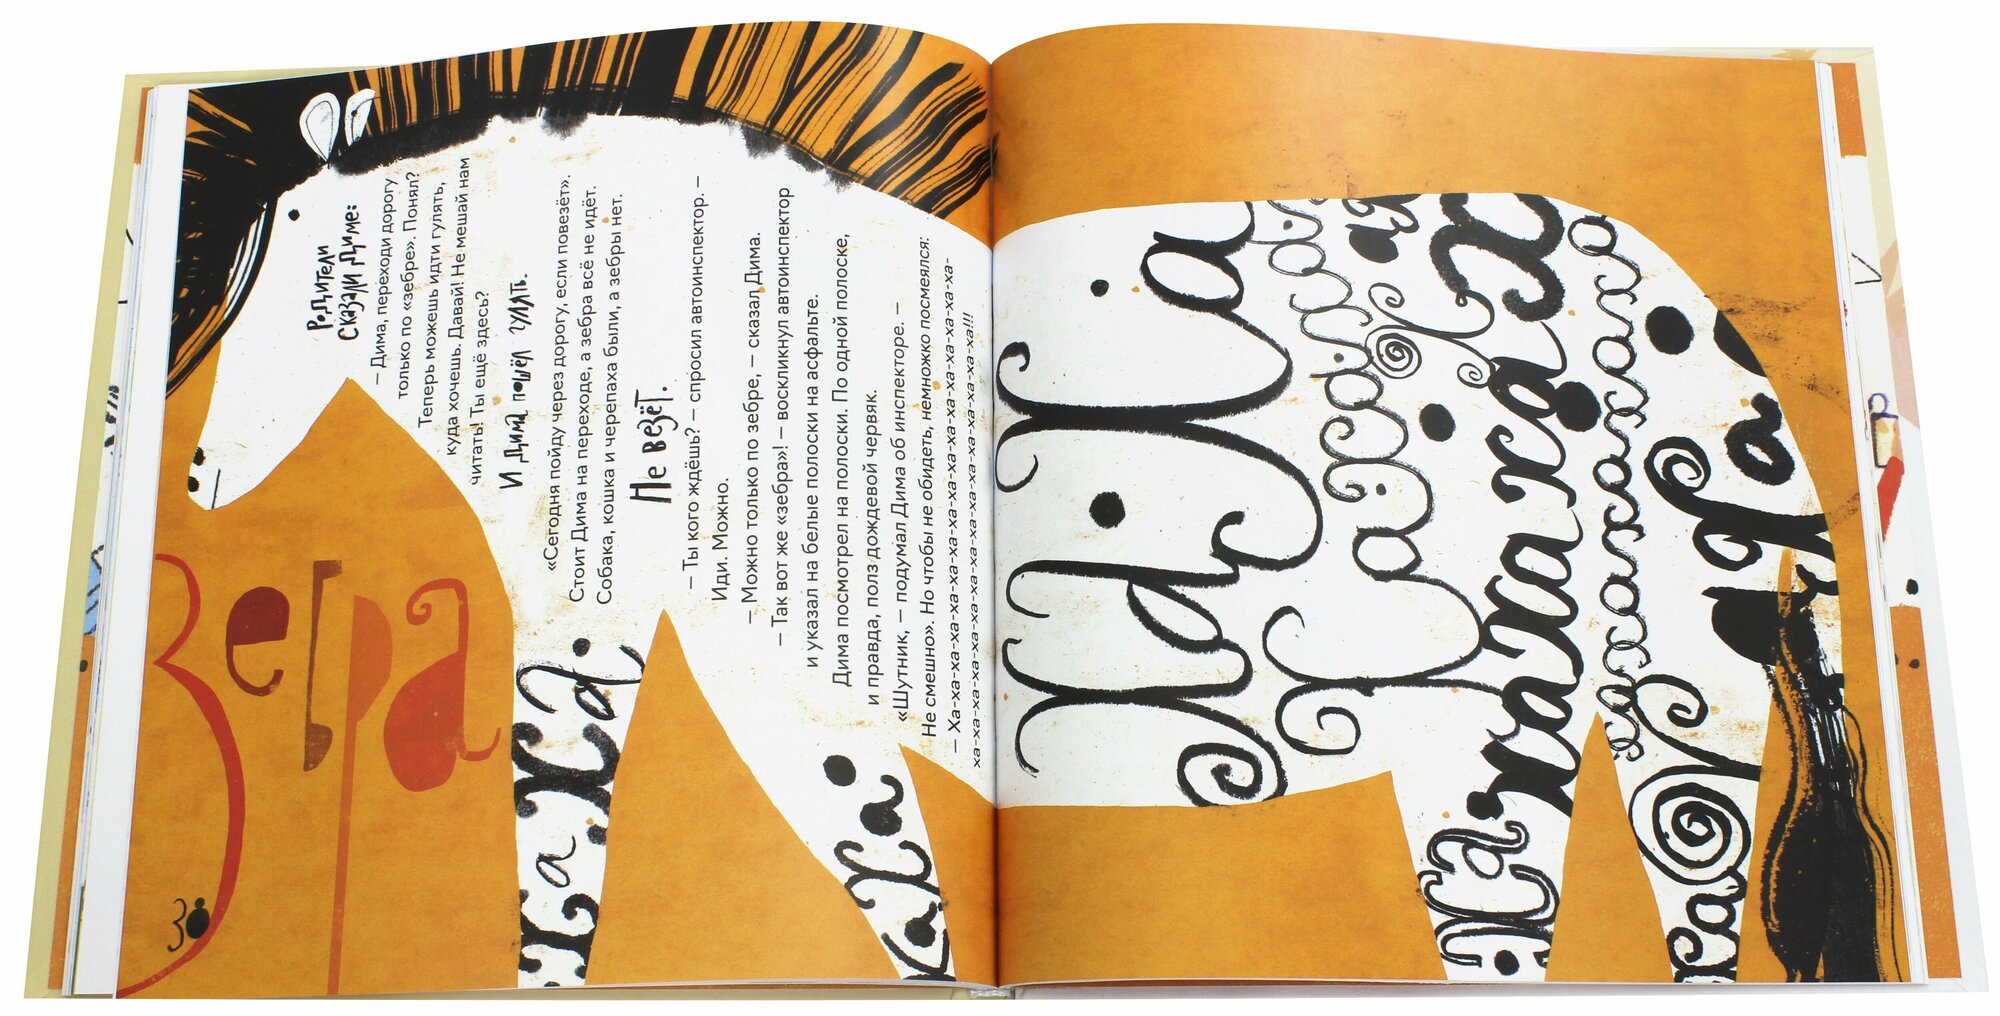 Зебра
Родители
сказали Диме:
— Дима, переходи дорогу
только по «зебре». Понял?
Теперь можешь идти гулять,
куда хочешь. Давай! Не мешай нам
читать! Ты ещё здесь?
И Дима пошёл гулять.
«Сегодня пойду через дорогу, если повезёт».
Стоит Дима на переходе, а зебра всё не идёт.
Собака, кошка и черепаха были, а зебры нет.
Не везёт.
— Ты кого ждёшь? — спросил автоинспектор. —
Иди. Можно.
— Можно только по зебре, — сказал Дима.
— Так вот же «зебра»! — воскликнул автоинспектор
и указал на белые полоски на асфальте.
Дима посмотрел на полоски. По одной полоске,
и правда, полз дождевой червяк.
«Шутник, — подумал Дима об инспекторе. —
Не смешно». Но чтобы не обидеть, немножко посмеялся:
— Ха-ха-ха-ха-ха-ха-ха-ха-ха-ха-ха-ха-ха-ха-ха-ха-ха-ха-
ха-ха-ха-ха-ха-ха-ха-ха-ха-ха-ха-ха-ха-ха-ха-ха!!!
ха ха
ха
ха ха ха
ха ха ха ха
38